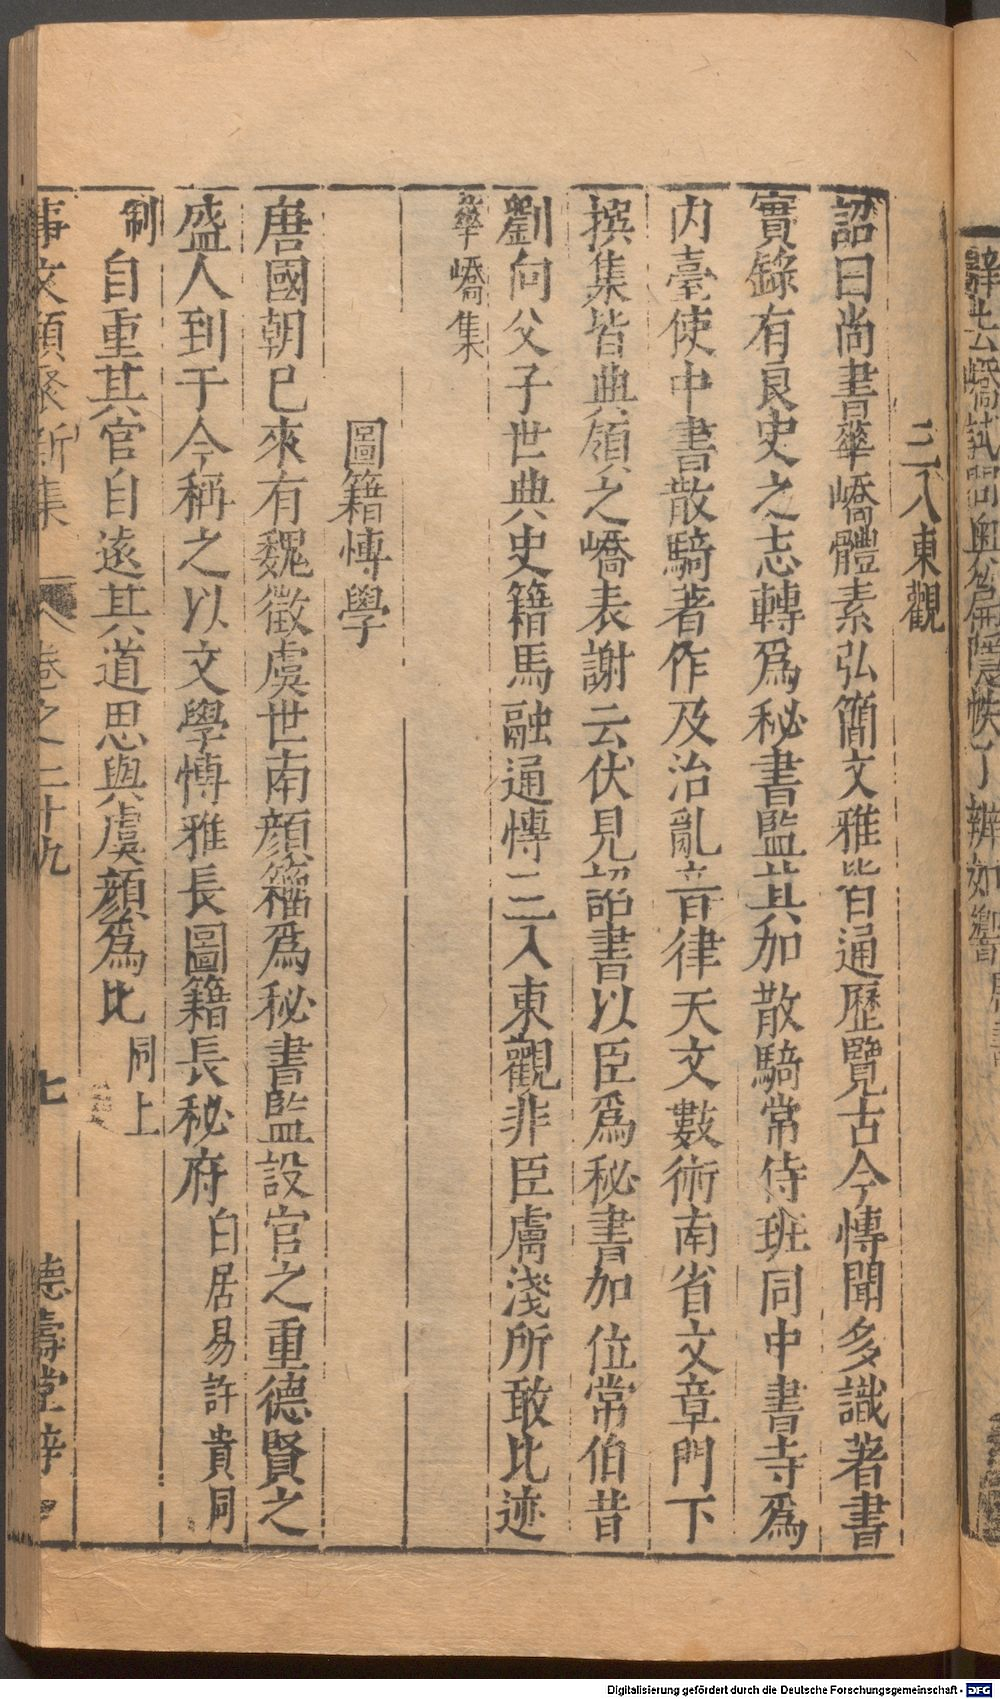 三入東觀
詔曰尚書華嶠體素弘簡文雅皆通歷覽古今愽聞多識著書
實錄有良史之志轉爲秘書監其加散騎常侍班同中書寺爲
內臺使中書散騎著作及治亂音律天文數術南省文章門下
撰集皆典領之嶠表謝云伏見詔書以臣爲秘書加位常伯昔
劉向父子世典史籍馬融通愽三入東觀非臣膚淺所敢比迹
華嶠集
圖籍愽學
唐國朝已來有魏徵虞世南顏籀爲秘書監設官之重德賢之
盛人到于今稱之以文學愽雅長圖籍長秘府 白居易許貴同
制 自重其官自遠其道思與虞顏爲比 同上
事文類聚新集 卷之二十九 七 德壽堂梓
Digitalisierung gefördert durch die Deutsche Forschungsgemeinschaft - DFG